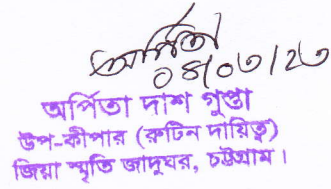 অর্পিতা
০৪/০৩/২৩
অর্পিতা দাশ গুপ্তা
উপ-কীপার (রুটিন দায়িত্ব)
জিয়া স্মৃতি জাদুঘর, চট্টগ্রাম।